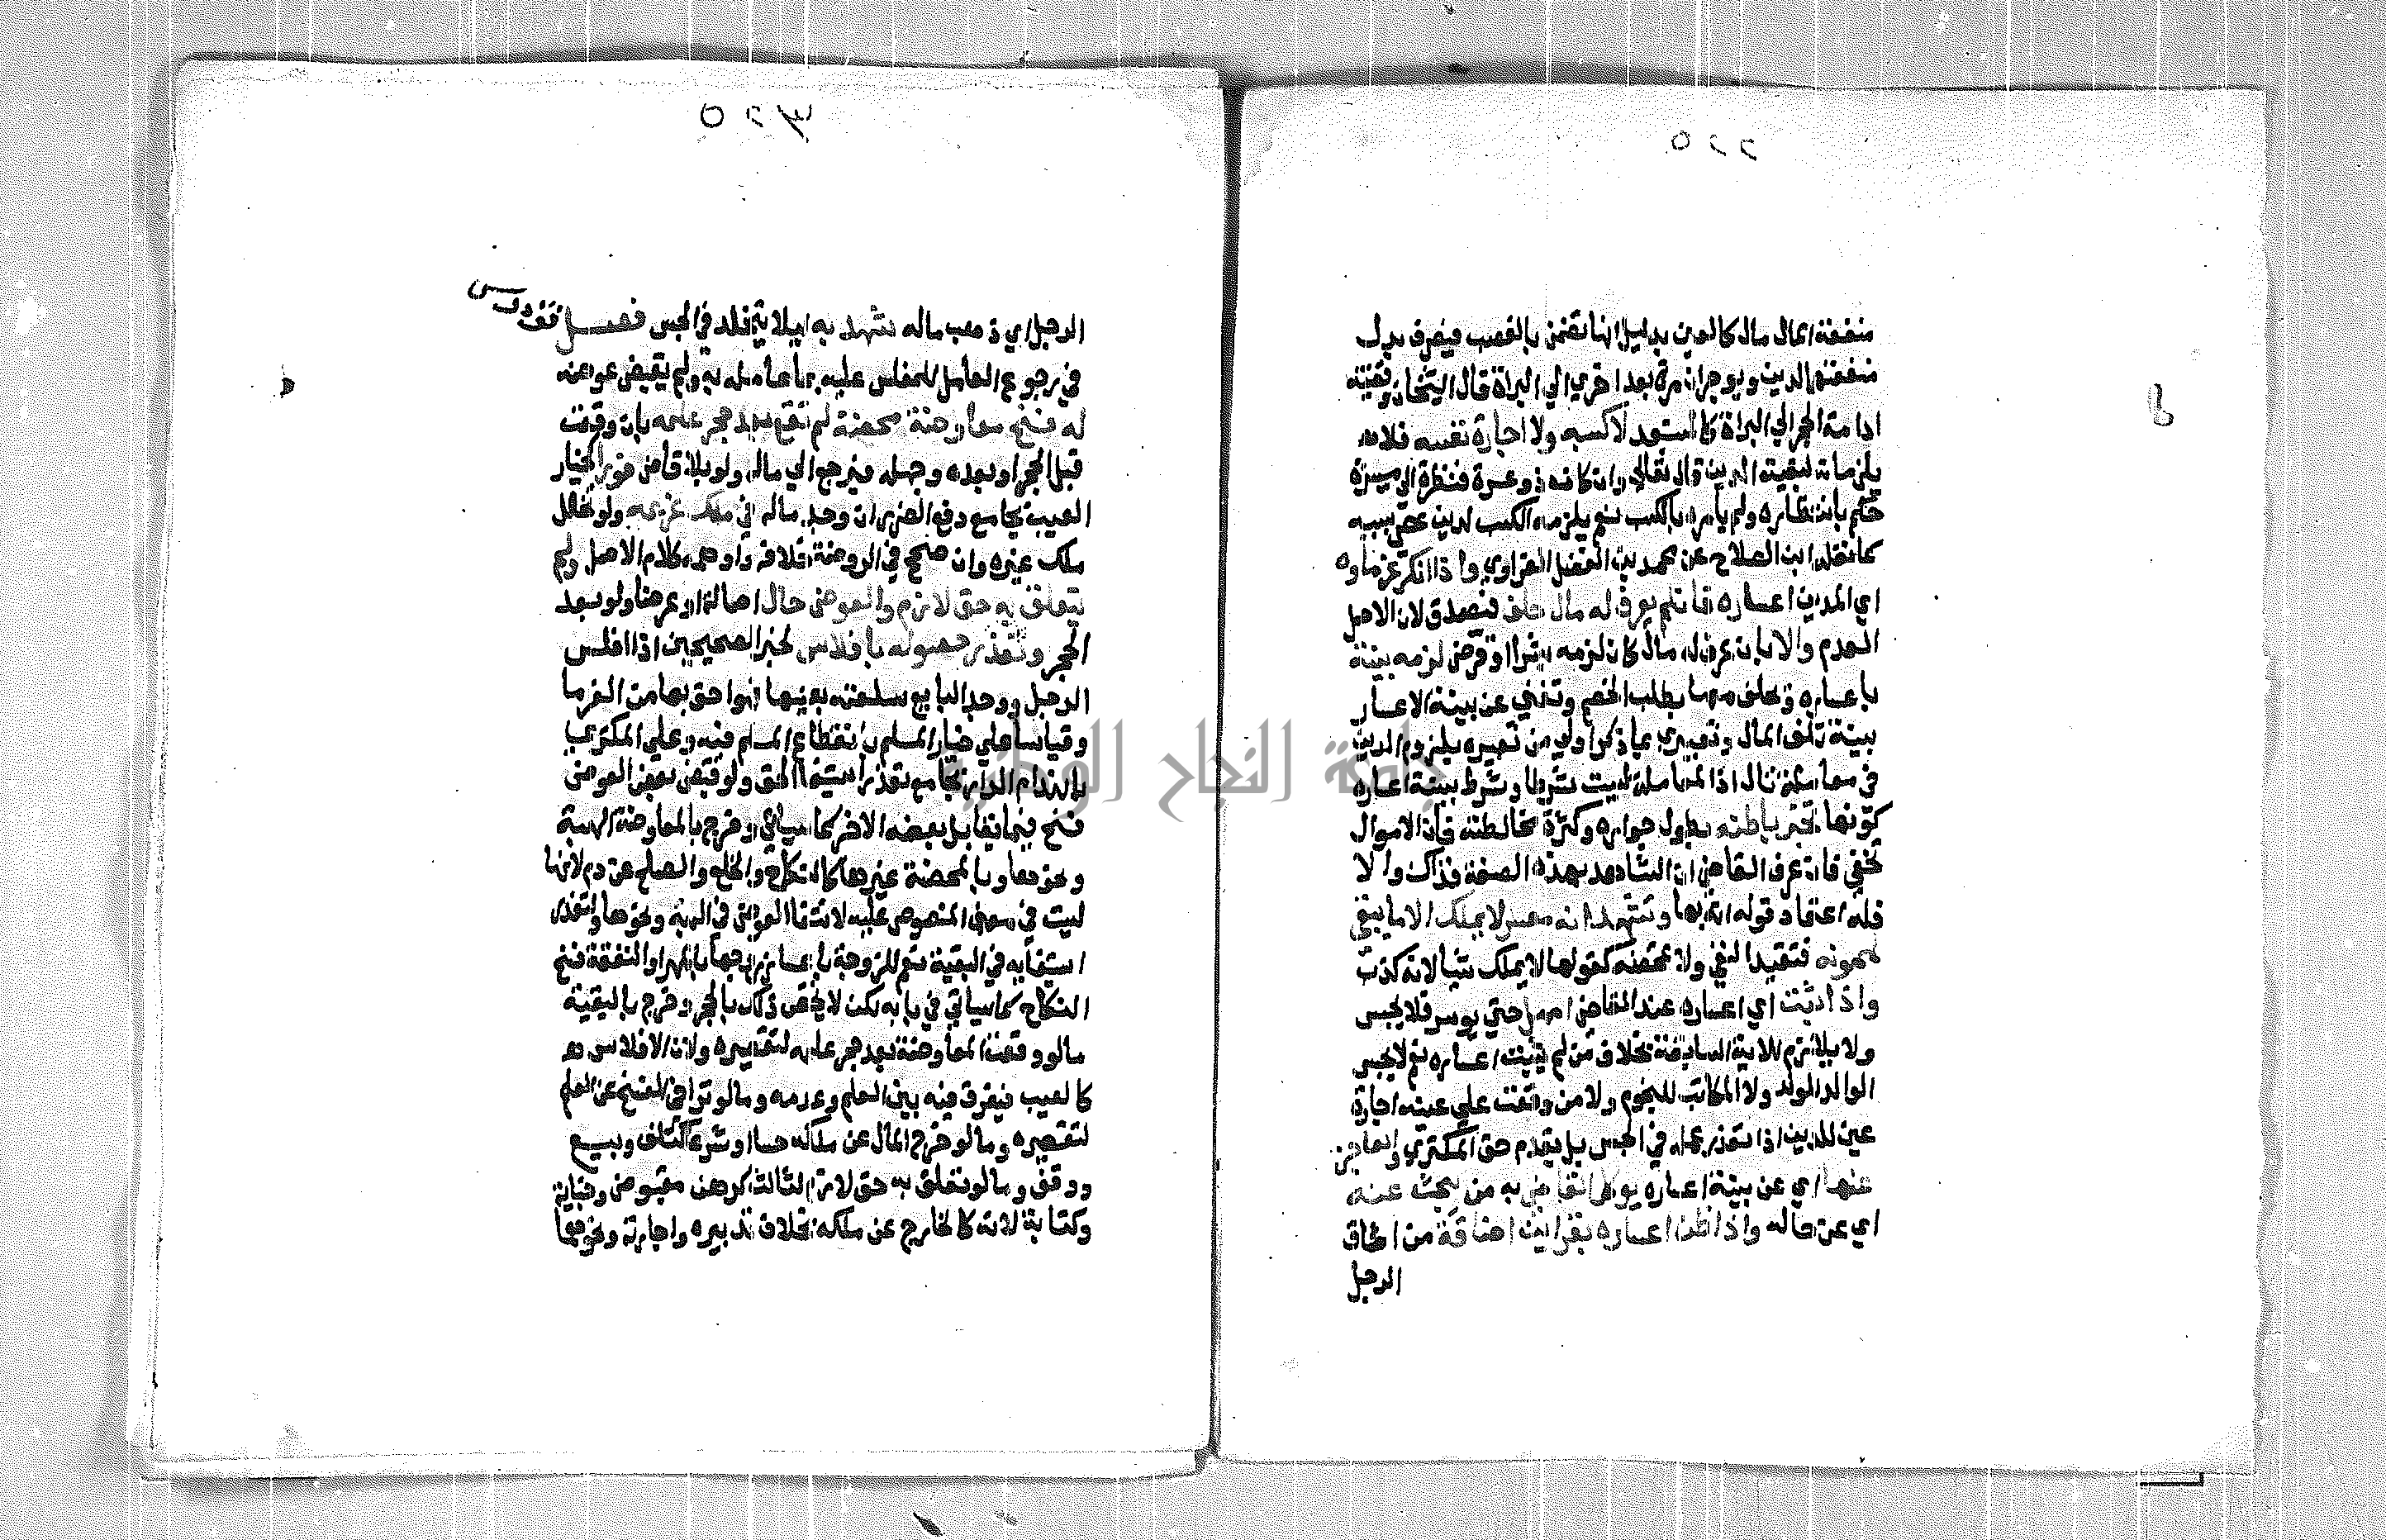 ٥٢٢
منفعة المال مال كالعين بدليل انها تضمن بالغصب فيصرف بدل
منفعتهما للدين ويوجران مرة بعد اخري الي البراة قال الشيخان وقضيته
ادامة الحجر الي البراة كالمستبعد لا كسبه ولا اجارة نفسه فلا
يلزمانه لبقية الدين قال تعالي وان كان ذو عسرة فنظرة الي ميسرة
حكم بانظاره ولم يأمره بالكسب نعم يلزمه الكسب لدين عصي بسببه
كما نقله ابن الصلاح عن محمد بن الفضل الفراوي واذا انكر غرماوه
اي المدين اعساره فان لم يعرف له مال حلف فيصدق لان الاصل
العدم والا بان عرف له مال كان لزمه بشراء او قرض لزمه بينة
باعساره وتحلف معها بطلب الخصم وتغني عن بينة الاعسار
بينة تلف المال وتعبيري بما ذكر اولي من تعبيره بلزوم الدين
في معاملة مال اذ المعاملة ليست شرطا وشرط بينة اعساره
كونها تخبر باطنه بطول جواره وكثرة مخالطته فان الاموال
تخفي فان عرف القاضي ان الشاهد بهذه الصفة فذاك والا
فله اعتماد قوله انه بها وتشهد انه معسر لا يملك الا ما يبقي
لممونه فتقيد النفي ولا تمحضه كقولها لا يملك شيا لانه كذب
واذا ثبت اي اعساره عند القاضي امهل حتي يوسر فلا يحبس
ولا يلازم للاية السابقة بخلاف من لم يثبت اعساره نعم لا يحبس
الوالد للولد ولا المكاتب للنجوم ولا من وقعت علي عينه اجارة
عين للدين اذا تعذر عمله في الحبس بل يقدم حق المكتري والعاجز
عنها اي عن بينة اعساره يوكل القاضي به من يبحث عنه
اي عن حاله واذا ظن اعساره بقراين اضاقة من اضاق
الرجل
٥٢٣
الرجل اي ذهب ماله شهد به ليلا يتخلد في الحبس فصل
في رجوع المعامل للمفلس عليه بما عامله به ولم يقبض عوضه
له فسخ معاوضة محضة لم تقع بعد حجر علمه بان وقعت
قبل الحجر او بعده وجهله فيرجع الي ماله ولو بلا قاض فورا كخيار
العيب بجامع دفع الضرر ان وجد ماله في ملك غريمه ولو تخلل
ملك غيره وان صحح في الروضة خلافه واوهمه كلام الاصل ولم
يتعلق به حق لازم والعوض حال اصالة او عرضا ولو بعد
الحجر وتعذر حصوله بافلاس لخبر الصحيحين اذا افلس
الرجل ووجد البايع سلعته بعينها فهو احق بها من الغرما
وقياسا علي خيار المسلم بانقطاع المسلم فيه وعلي المكتري
بانهدام الدار بجامع تعذر استيفا الحق ولو قبض بعض العوض
فسخ فيما يقابل بعضه الاخر كما سياتي وخرج بالمعاوضة الهبة
ونحوها وبالمحضة غيرها كالنكاح والخلع والصلح عن دم لانها
ليست في معني المنصوص عليه لانتفا العوض في الهبة ونحوها ولتعذر
استيفايه في البقية نعم للزوجة باعسار زوجها بالمهر او النفقة فسخ
النكاح كما سياتي في بابه لكن لا يختص ذلك بالحجر وخرج بالبقية
مالو وقعت المعاوضة بعد حجر علمه لتقصيره ولان الافلاس
كالعيب فيفرق فيه بين العلم وعدمه ومالو تراخي الفسخ عن العلم
لتقصيره ومالو خرج المال عن ملكه حسا او شرعا كتلف وبيع
ووقف ومالو تعلق به حق لازم لثالث كرهن مقبوض وجناية
وكتابة لانه كالخارج عن ملكه بخلاف تدبيره واجارته ونحوهما
جامعة النجاح الوطنية